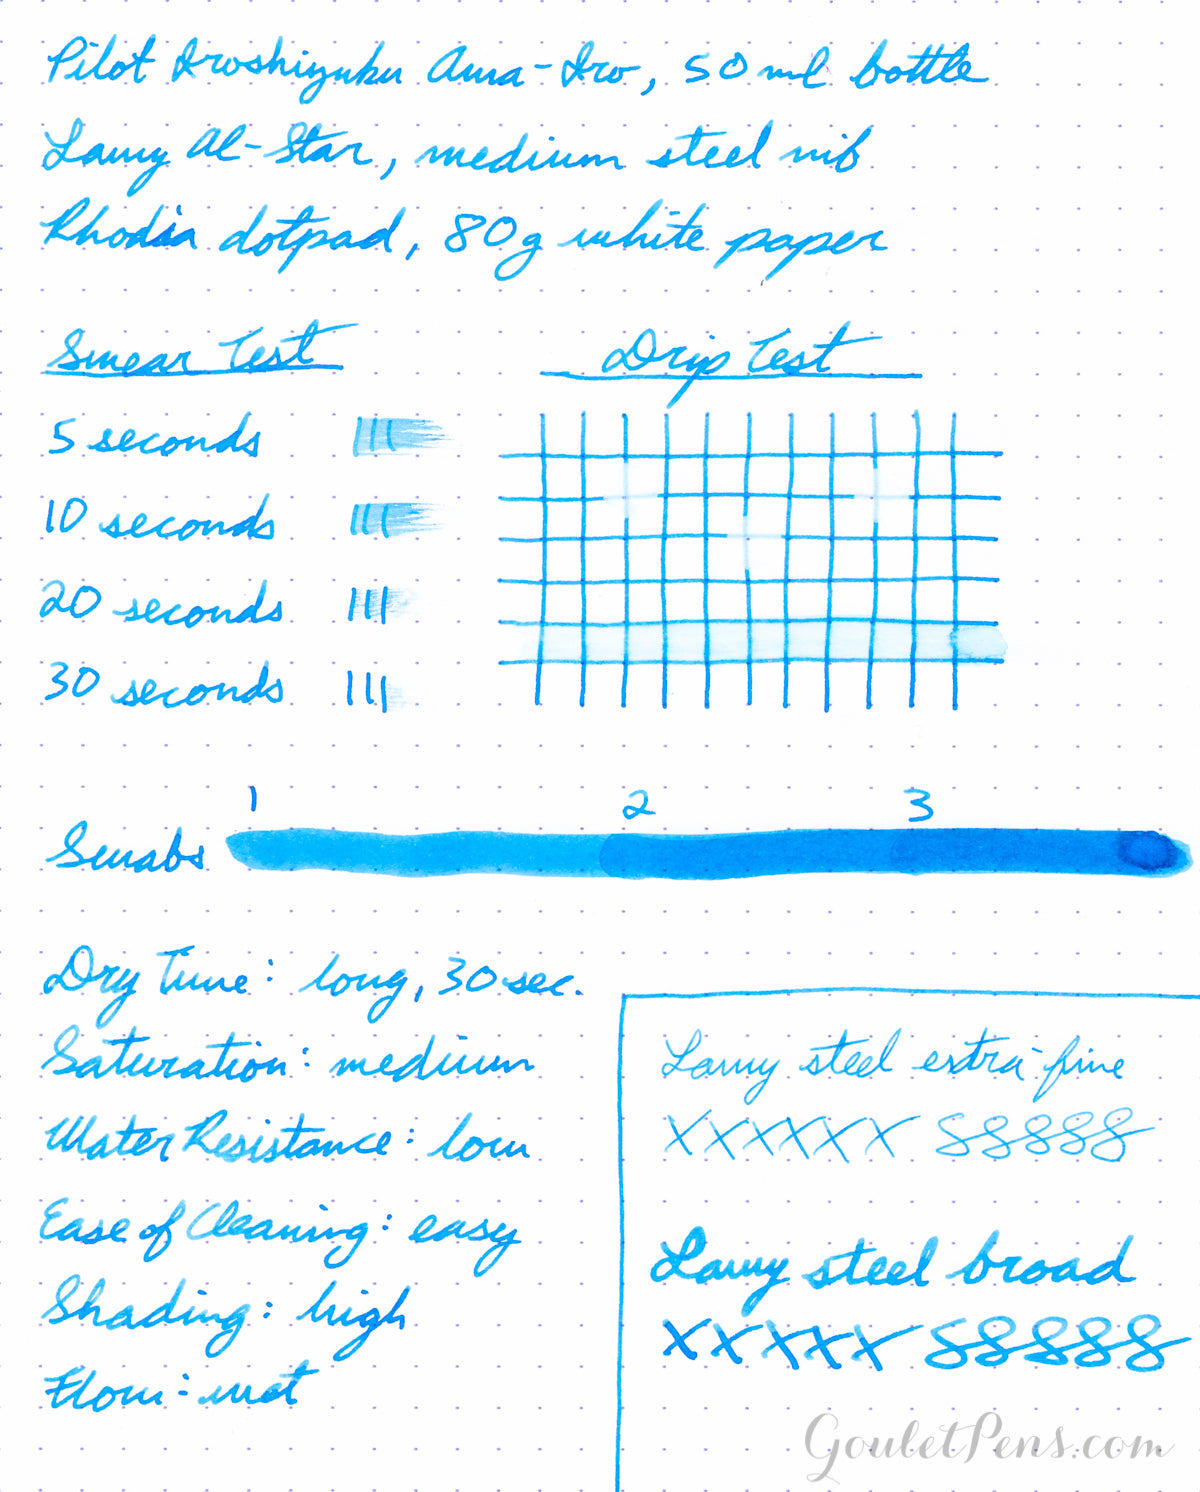 Pilot Iroshizuku Ama-Iro, 50 ml bottle
Lamy Al-Star, medium steel nib
Rhodia dotpad, 80g white paper
Smear Test
Drip Test
5 seconds
10 seconds
20 seconds
30 seconds
1 2 3
Swabs
Dry Time: long, 30 sec.
Saturation: medium
Water Resistance: low
Ease of Cleaning: easy
Shading: high
Flow: wet
Lamy steel extra-fine
XXXXXX 88888
Lamy steel broad
XXXXX 88888
GouletPens.com